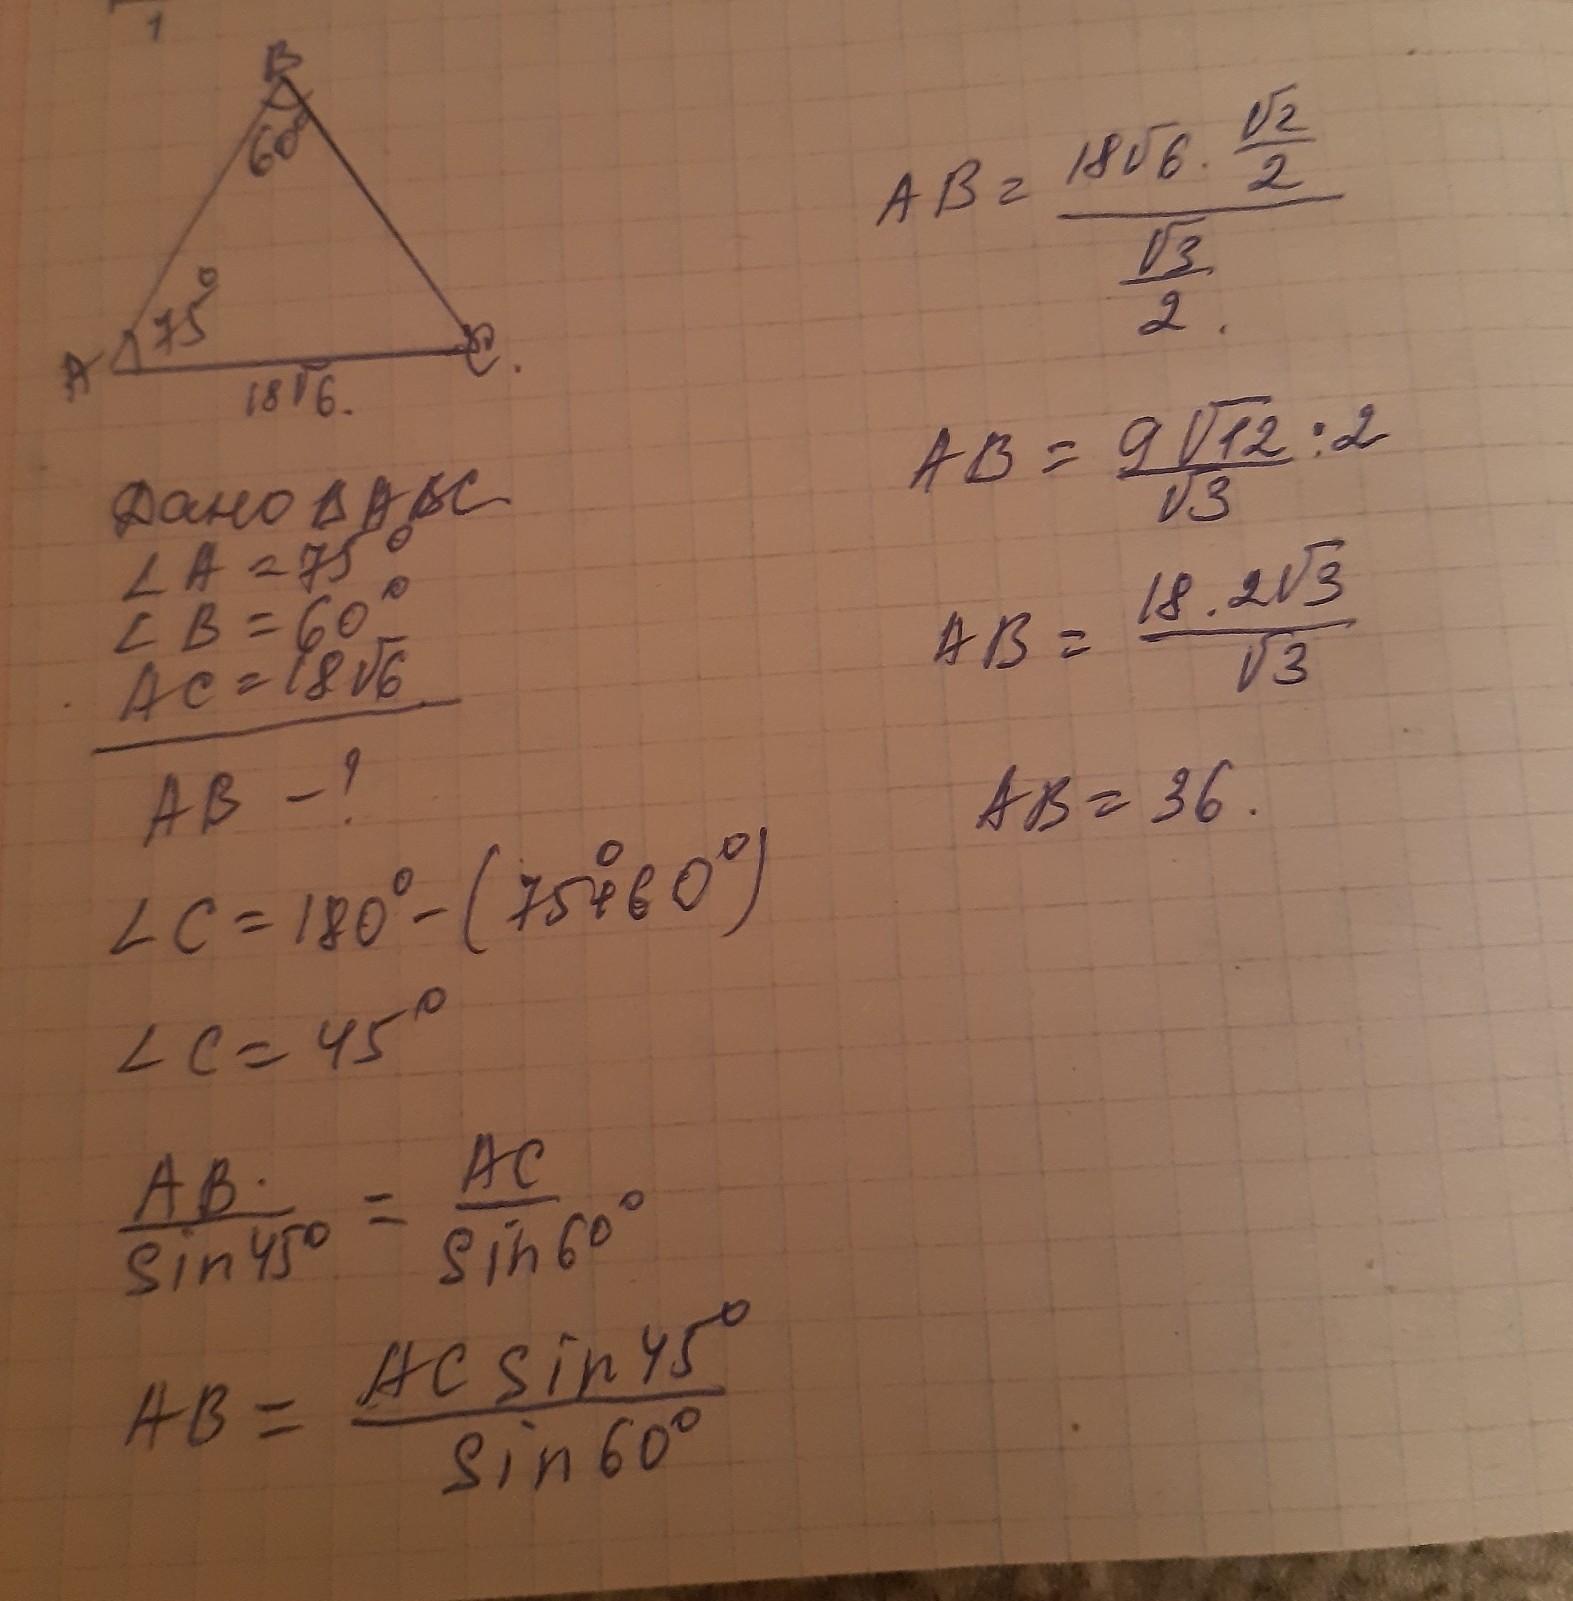 1
B
60°
75°
A
C.
18√6.
Дано ΔABC
∠A = 75°
∠B = 60°
AC = 18√6
AB - ?
∠C = 180° - (75°+60°)
∠C = 45°
AB/sin45° = AC/sin60°
AB = AC sin45°/sin60°
AB = (18√6 · √2/2)/(√3/2).
AB = 9√12/√3 : 2
AB = 18 · 2√3/√3
AB = 36.